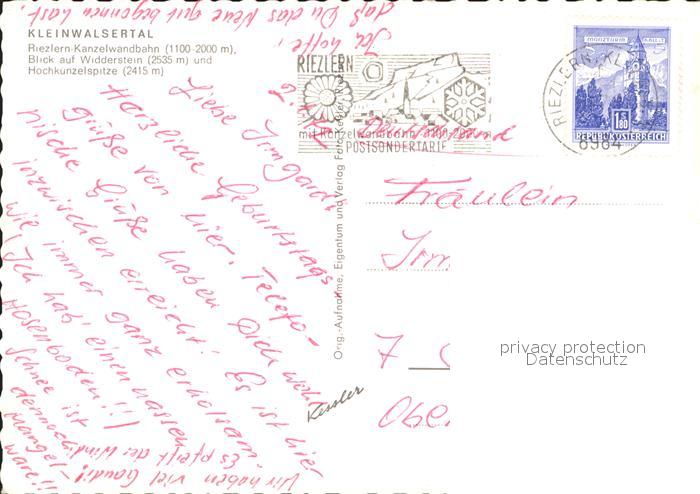 KLEINWALSERTAL
Riezlern-Kanzelwandbahn (1100-2000 m),
Blick auf Widderstein (2535 m) und
Hochkünzelspitze (2415 m)
Liebe Irmgard,
Herzliche Geburtstags
grüße von hier. Telefo-
nische Grüße haben Dich wohl
inzwischen erreicht! Es ist hier
wie immer ganz erholsam.
(Ich hab' einen nassen
Hosenboden!!!
Schnee ist
demnach
Mangel-
ware!!!
Es pfeift der Wind!
Wir haben viel Gaudi!
Ich hoffe,
daß Du das Neue gut begonnen hast.
RIEZLERN
mit Kanzelwandbahn 1100-2000 m
POSTSONDERTARIF
RIEZLERN, KL
6984
MÜNZTURM HALL I.T.
1.80
REPUBLIK ÖSTERREICH
Orig.-Aufnahme, Eigentum und Verlag Foto Kessler, Riezlern
Kessler
Fräulein
Irm
7
Obe
privacy protection
Datenschutz